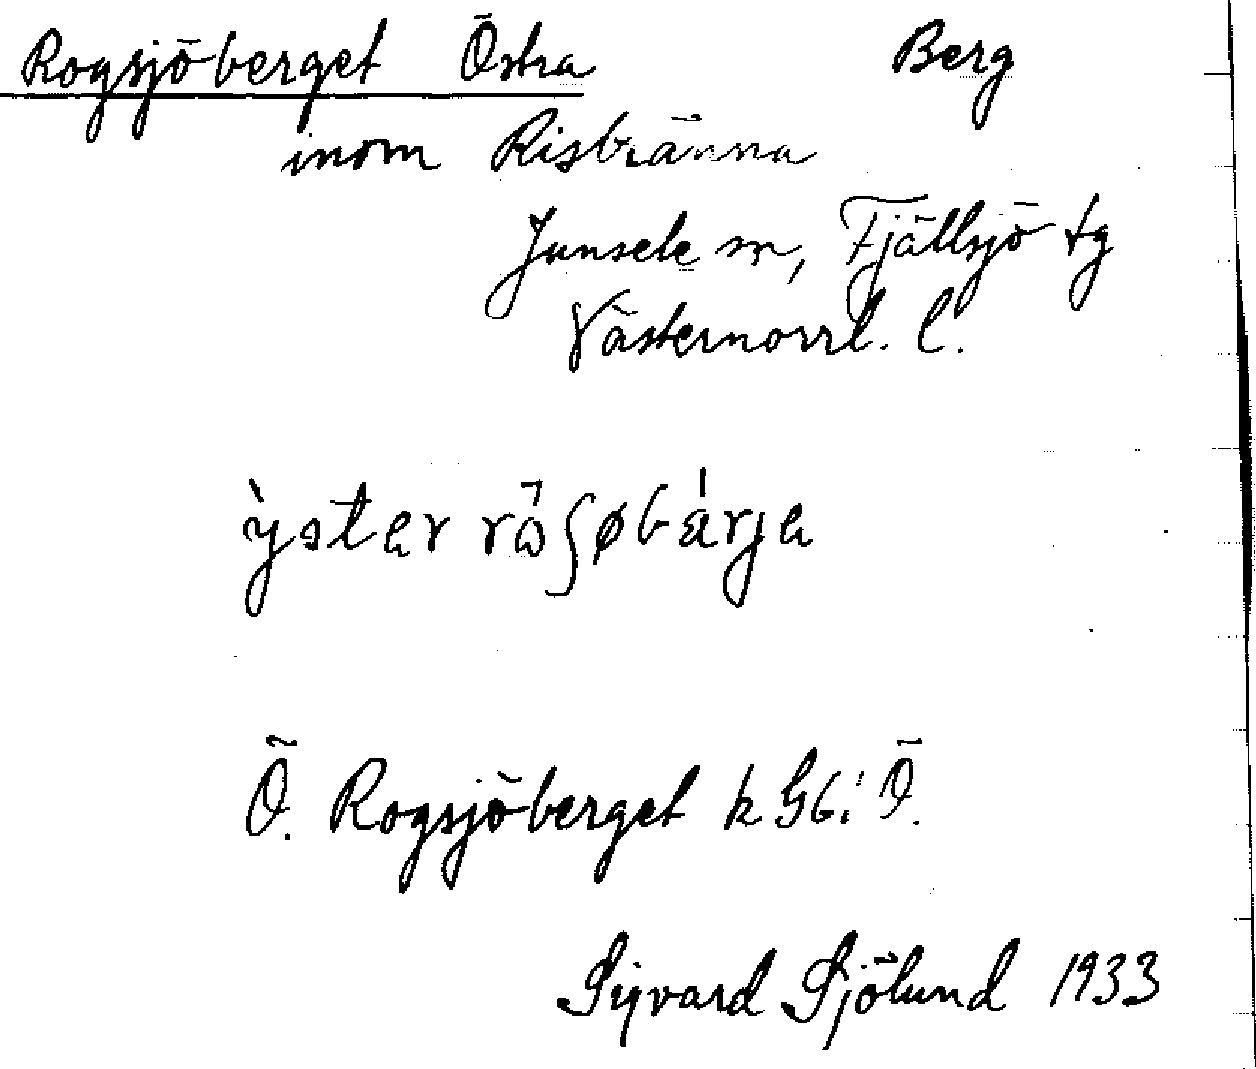 Rogsjöberget Östra Berg
inom Risbränna
Junsele sn, Fjällsjö tg
Västernorrl. l.
Ö. Rogsjöberget k Gb.
Sigvard Sjölund 1933